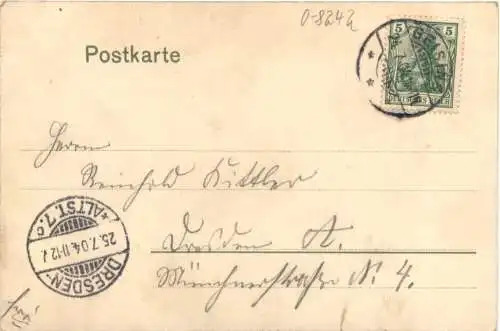 0-8242
Postkarte
5 5
Herrn
Reinhold Kittler
Dresden A.
Münchnerstraße N. 4.
DRESDEN-ALTST. 7.c
25.7.04. 11-12 V.